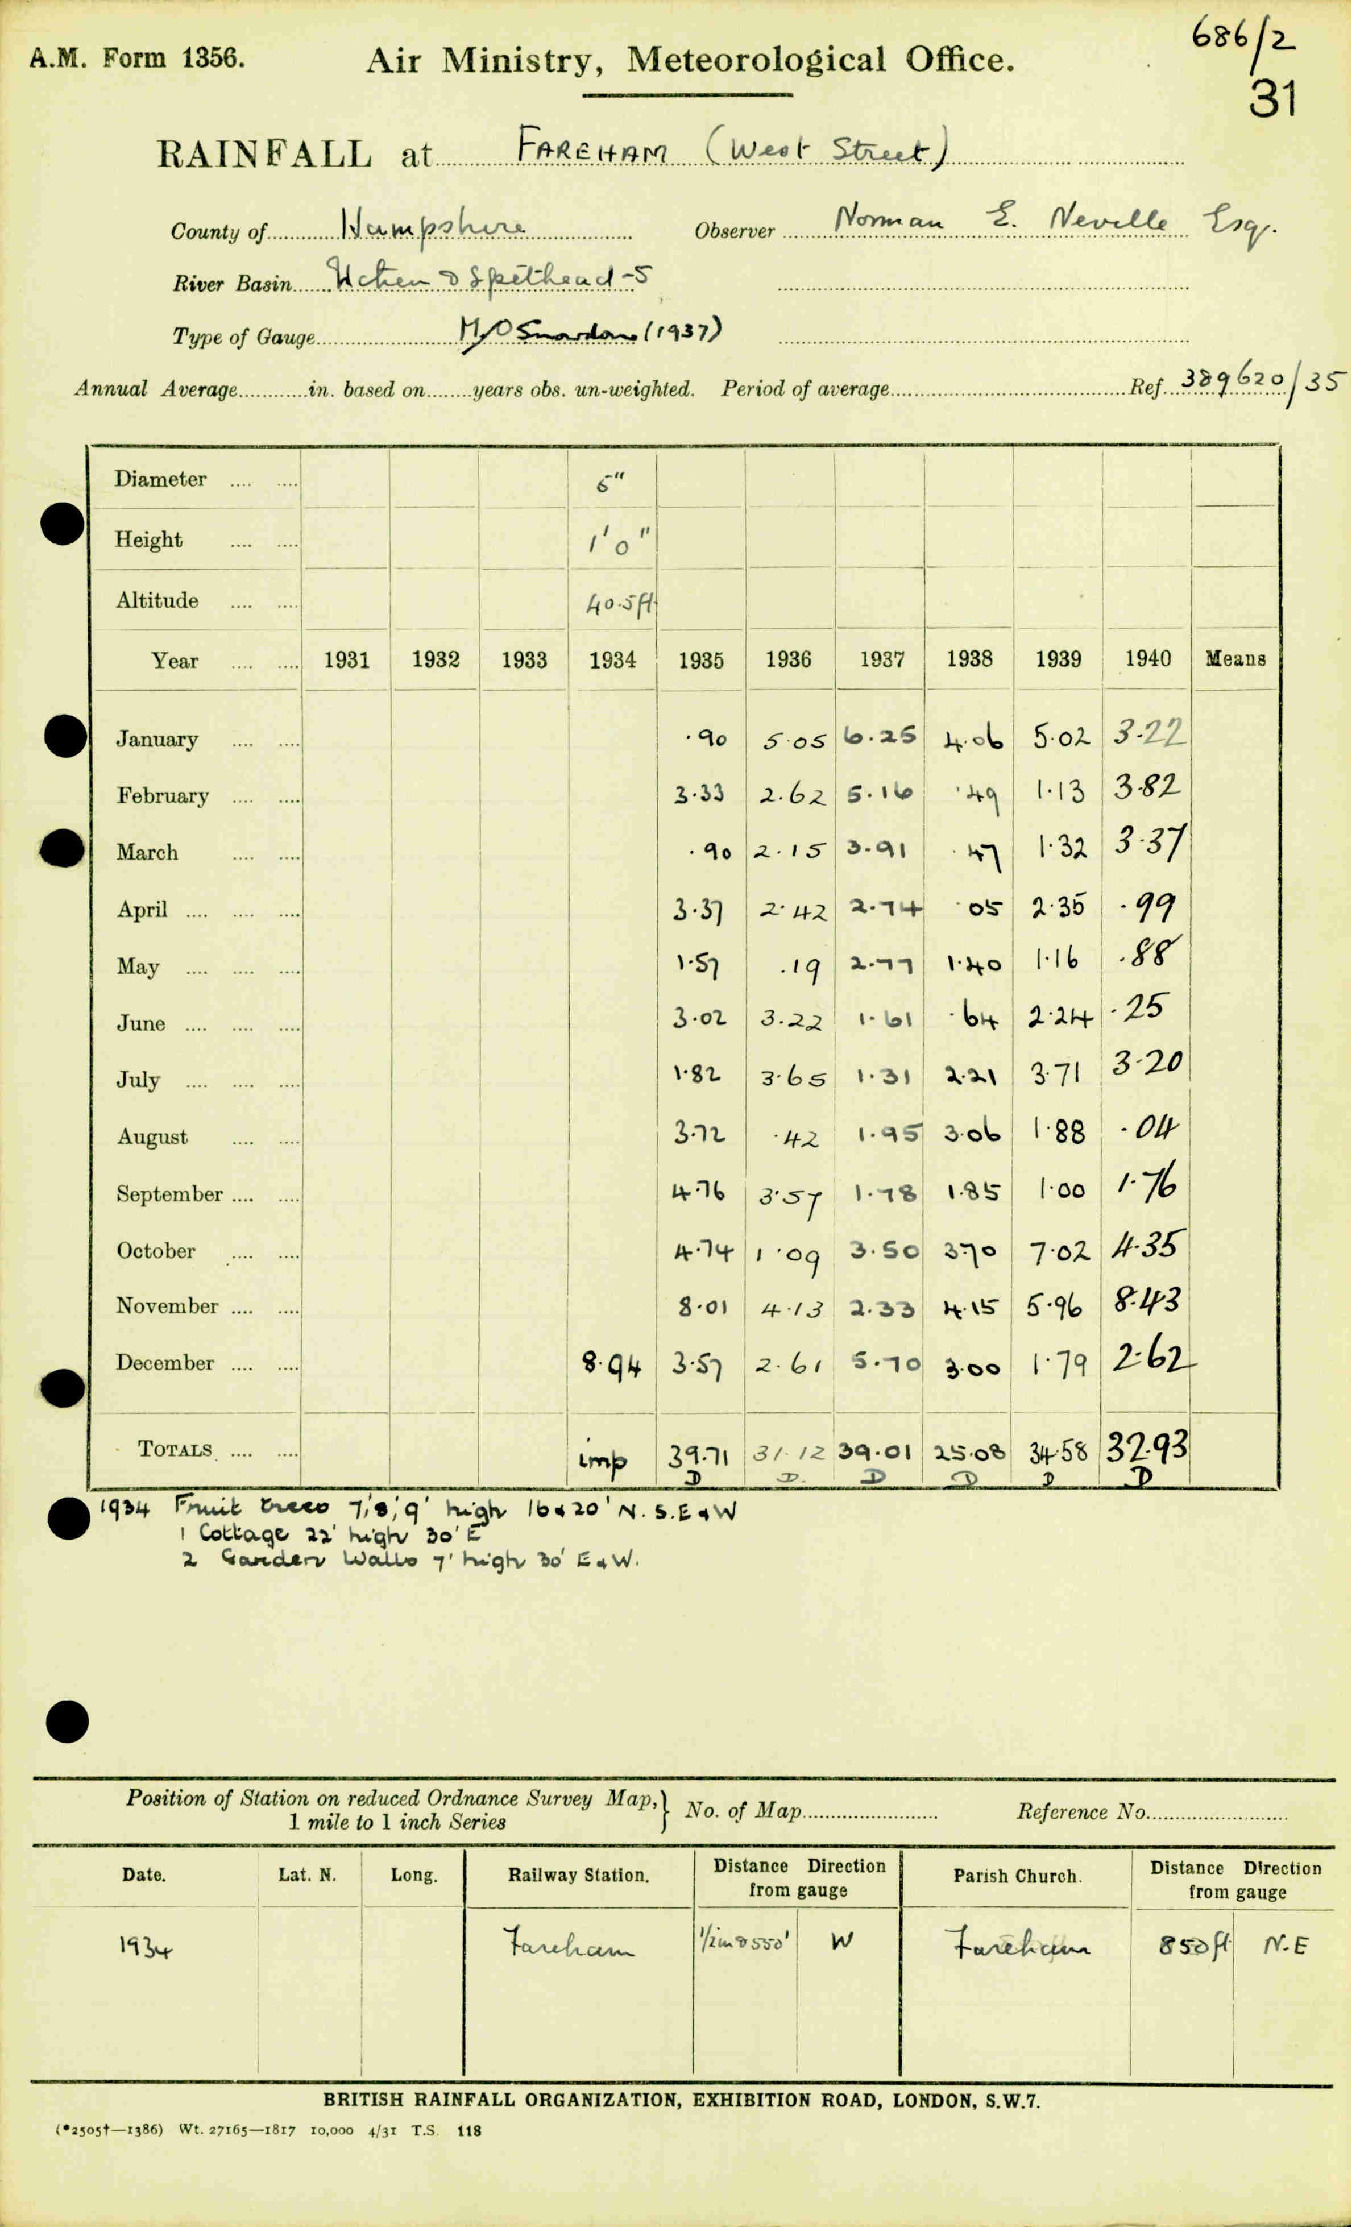 686/2
A.M. Form 1356. Air Ministry, Meteorological Office.
31
RAINFALL at FAREHAM (West Street)
County of Hampshire Observer Norman E. Neville Esq.
River Basin Itchen & Spithead -5
Type of Gauge M/O Snowdon (1937)
Annual Average in. based on years obs. un-weighted. Period of average Ref. 389620/35
Diameter 5"
Height 1'0"
Altitude 40.5ft
Year 1931 1932 1933 1934 1935 1936 1937 1938 1939 1940 Means
January .90 5.05 6.25 4.06 5.02 3.22
February 3.33 2.62 5.16 .49 1.13 3.82
March .90 2.15 3.91 .47 1.32 3.37
April 3.37 2.42 2.74 .05 2.35 .99
May 1.57 .19 2.77 1.40 1.16 .88
June 3.02 3.22 1.61 .64 2.24 .25
July 1.82 3.65 1.31 2.21 3.71 3.20
August 3.72 .42 1.95 3.06 1.88 .04
September 4.76 3.57 1.78 1.85 1.00 1.76
October 4.74 1.09 3.50 3.70 7.02 4.35
November 8.01 4.13 2.33 4.15 5.96 8.43
December 8.94 3.57 2.61 5.70 3.00 1.79 2.62
TOTALS imp 39.71 31.12 39.01 25.08 34.58 32.93
D D. D D D D
1934 Fruit trees 7', 8', 9' high 16 & 20' N. S. E & W
1 Cottage 22' high 30' E
2 Garden Walls 7' high 30' E & W.
Position of Station on reduced Ordnance Survey Map, } No. of Map Reference No.
1 mile to 1 inch Series
Date. Lat. N. Long. Railway Station. Distance Direction from gauge Parish Church. Distance Direction from gauge
1934 Fareham 1/2 m & 550' W Fareham 850ft N.E
BRITISH RAINFALL ORGANIZATION, EXHIBITION ROAD, LONDON, S.W.7.
(*2505†—1386) Wt. 27165—1817 10,000 4/31 T.S. 118